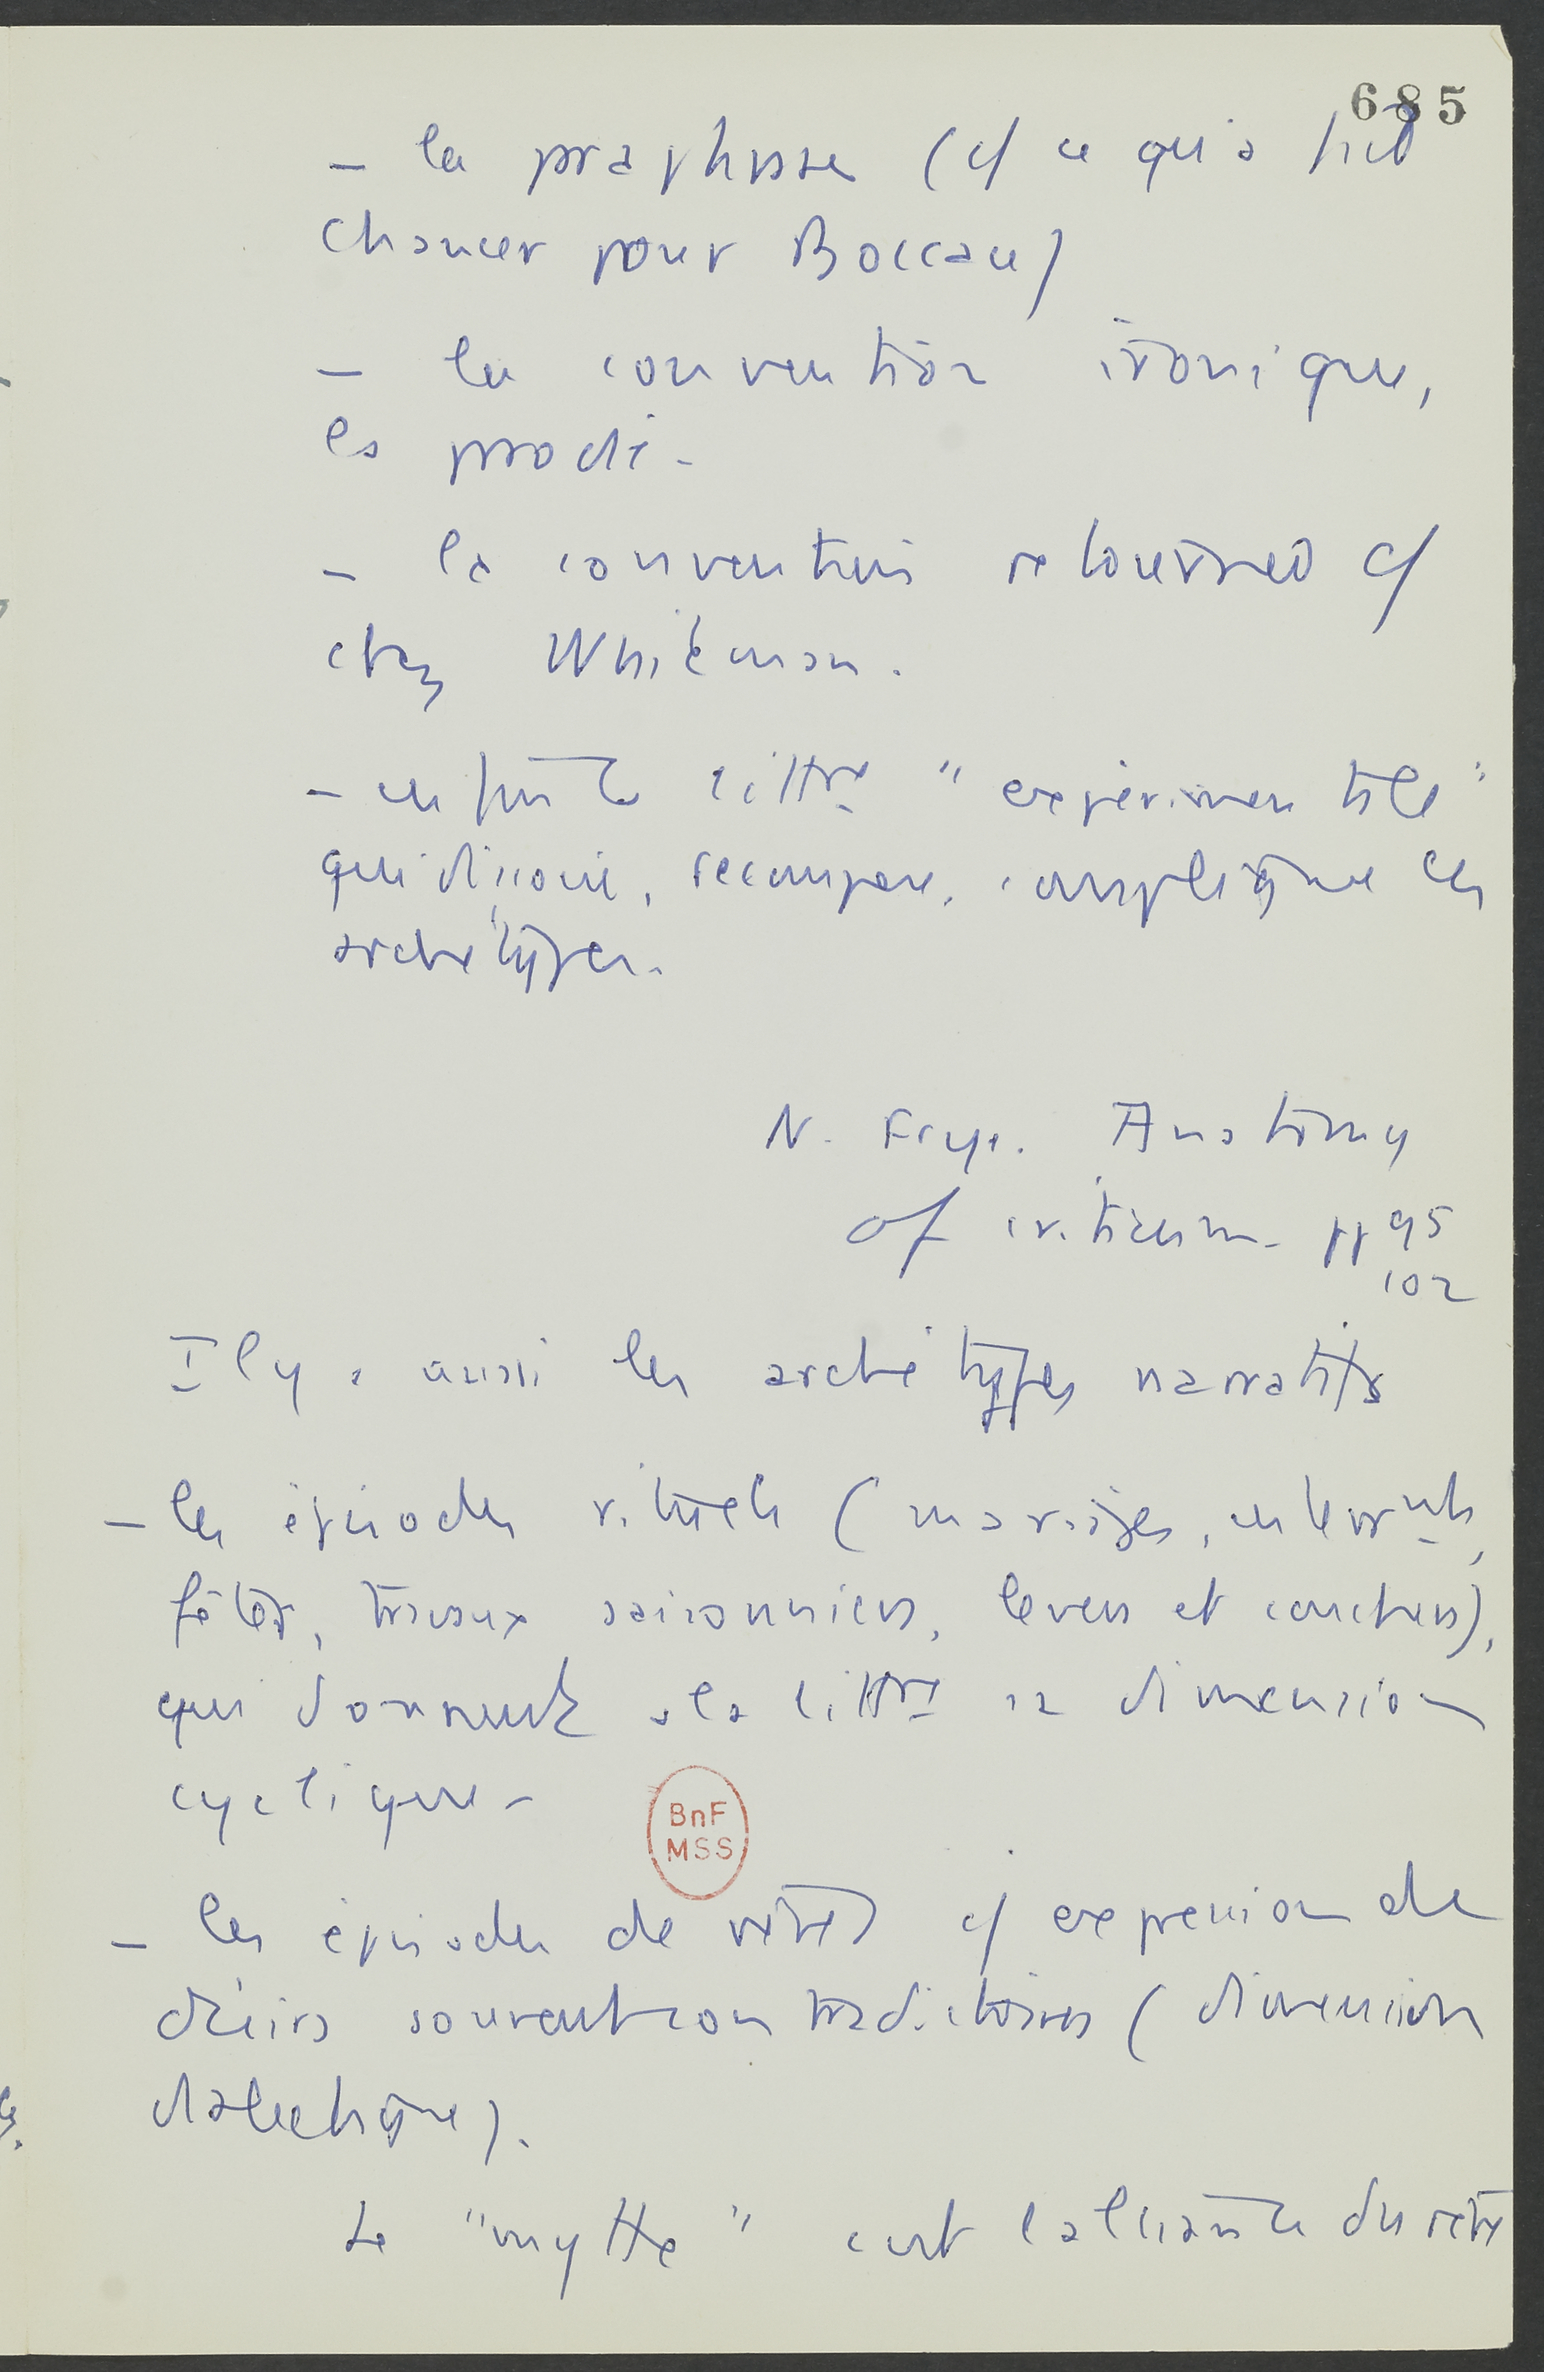 685
- la paraphrase (cf ce qu'a fait
Chaucer pour Boccace)
- la convention ironique,
la parodie -
- la convention retournée cf
chez Whitman.
- enfin la littre "expérimentale"
qui dissocie, recompose, complique les
archétypes.
N. Frye. Anatomy
of criticism - pp 95
102
Il y a aussi les archétypes narratifs
- les épisodes rituels (mariages, enterrnts,
fêtes, travaux saisonniers, levers et couchers),
qui donnent à la littre sa dimension
cyclique -
BnF
MSS
- les épisodes de rêves cf expression de
désirs souvent contradictoires (dimension
dialectique).
Le "mythe" c'est l'alliance du rite